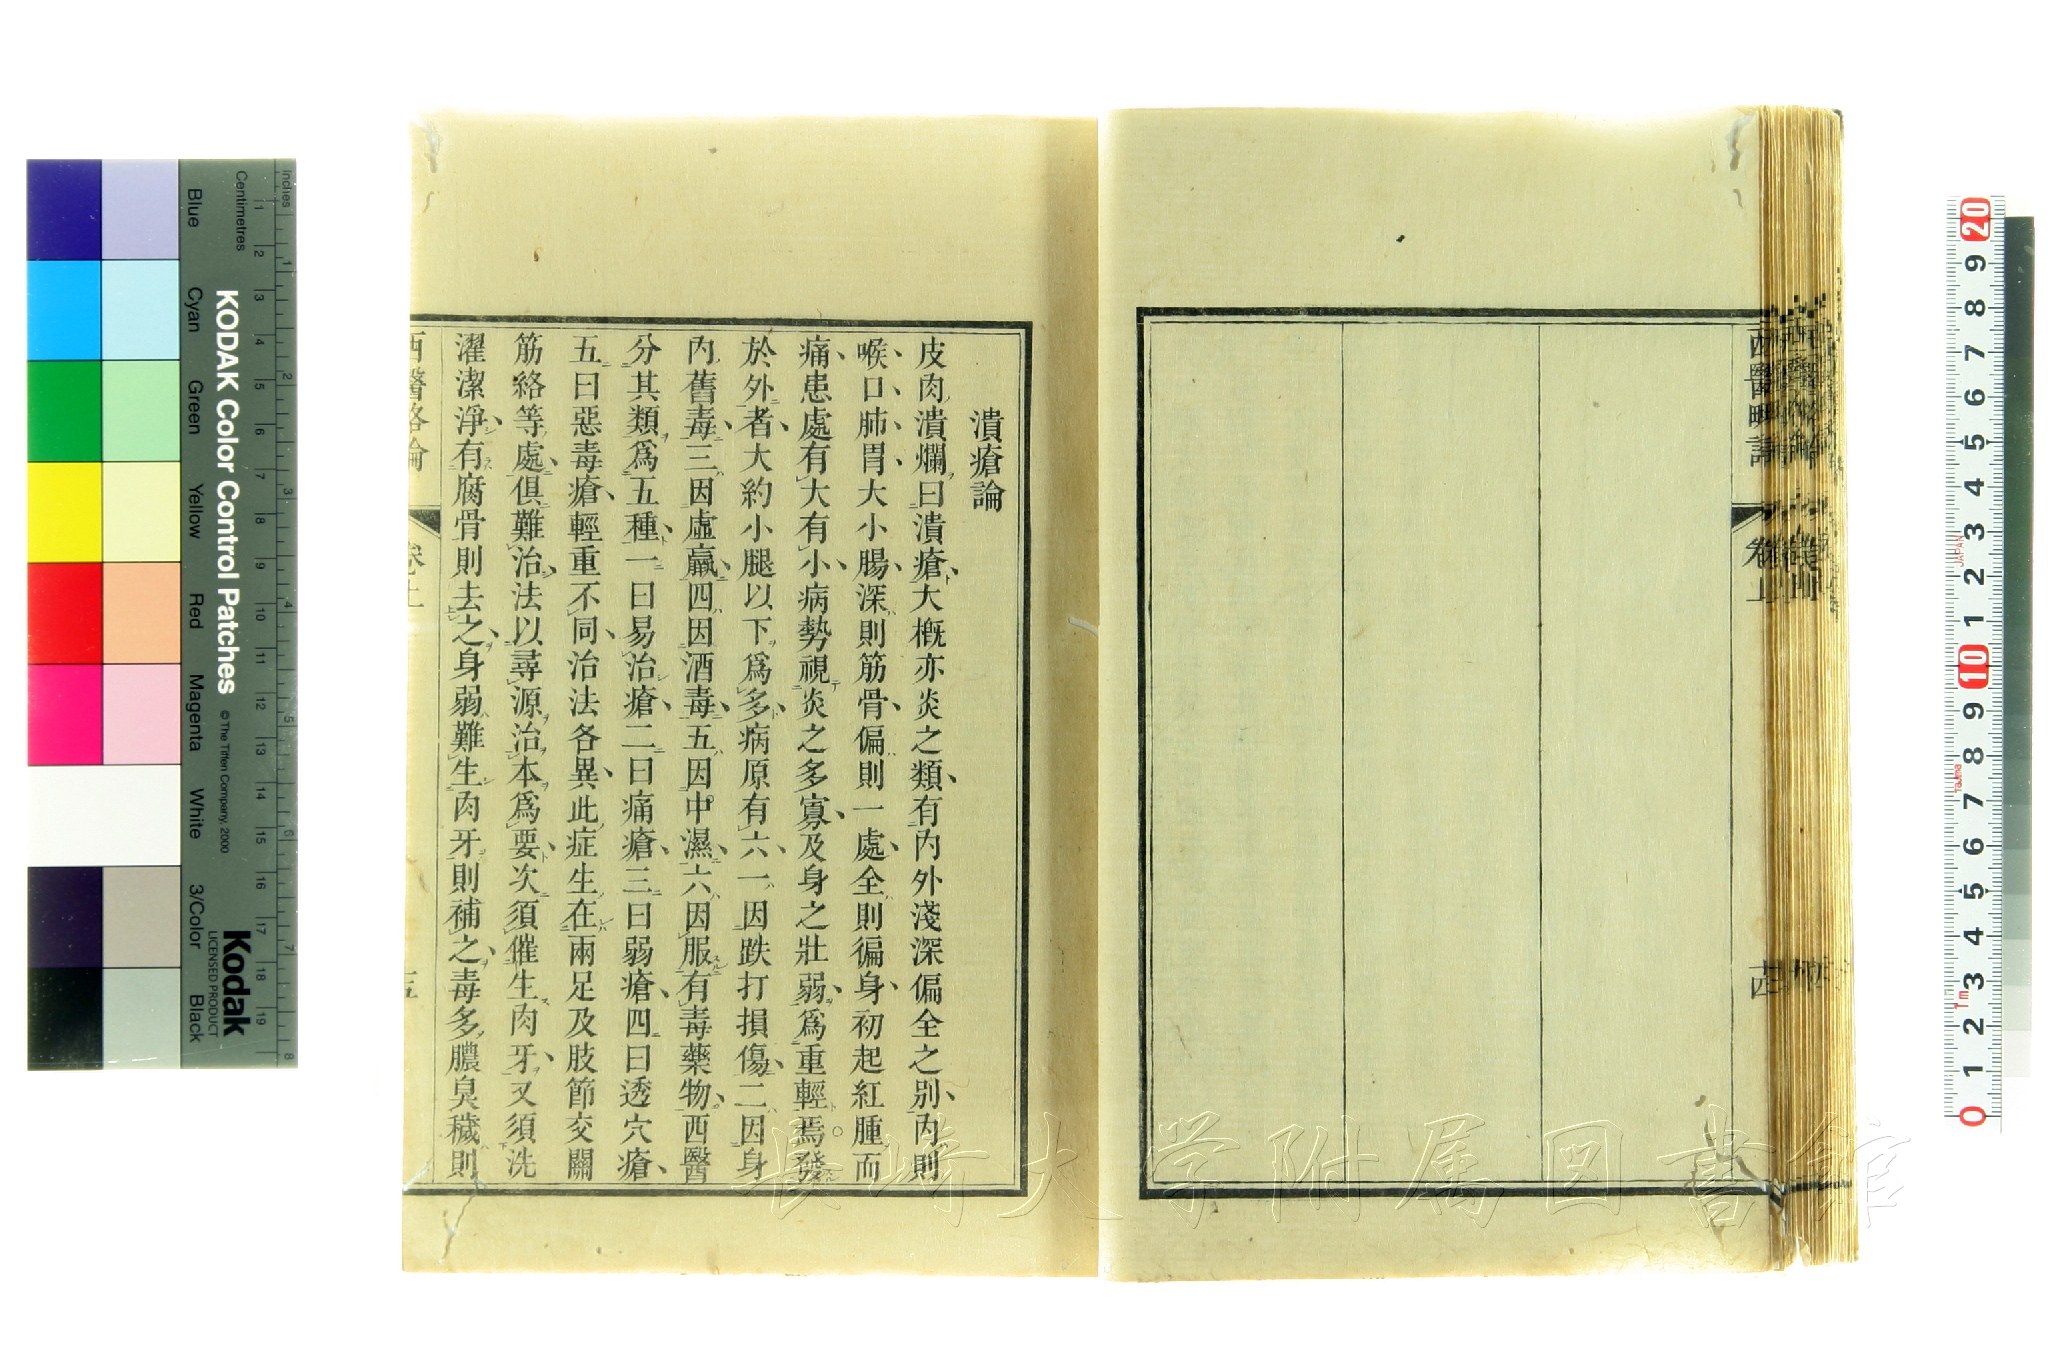 潰瘡論
皮肉潰爛曰潰瘡大槪亦炎之類有內外淺深偏全之別內則
喉口肺胃大小腸深則筋骨偏則一處全則徧身初起紅腫而
痛患處有大有小病勢視炎之多寡及身之壯弱爲重輕焉發
於外者大約小腿以下爲多病原有六一因跌打損傷二因身
內舊毒三因虛羸四因酒毒五因中濕六因服有毒藥物西醫
分其類爲五種一曰易治瘡二曰痛瘡三曰弱瘡四曰透穴瘡
五曰惡毒瘡輕重不同治法各異此症生在兩足及肢節交關
筋絡等處俱難治法以尋源治本爲要次須催生肉牙又須洗
濯潔淨有腐骨則去之身弱難生肉牙則補之毒多膿臭穢則
西醫略論
卷上
五
西醫略論
卷上
十四
長崎大学附属図書館
KODAK Color Control Patches
© The Tiffen Company, 2000
Kodak
LICENSED PRODUCT
Centimetres
inches
Blue
Cyan
Green
Yellow
Red
Magenta
White
3/Color
Black
1 2 3 4 5 6 7 8 9 10 11 12 13 14 15 16 17 18 19
1 2 3 4 5 6 7 8
20 9 8 7 6 5 4 3 2 1 10 9 8 7 6 5 4 3 2 1 0
JAPAN
1m